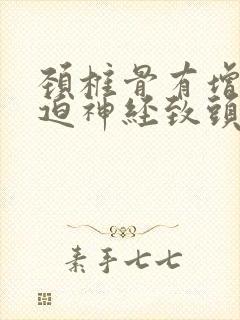 頚椎骨有增
迫神経致頭
素手七七